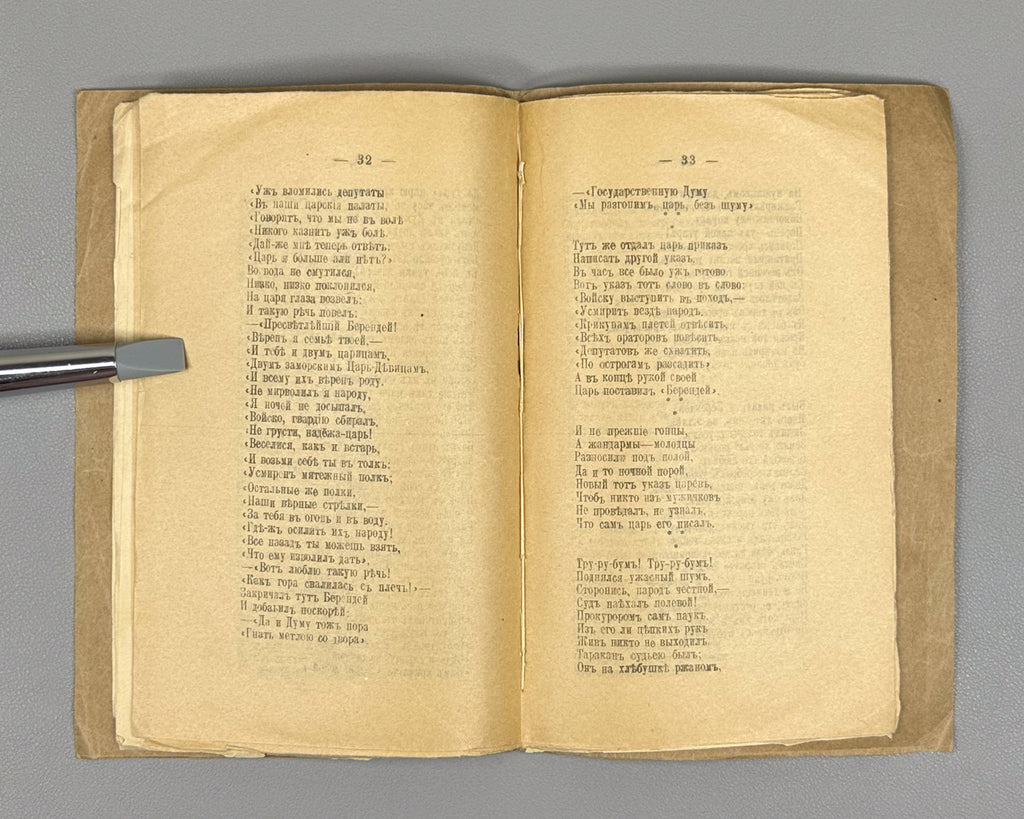 — 32 —
«Ужъ вломились депутаты
«Въ наши царскія палаты,
«Говорятъ, что мы не въ волѣ
«Никого казнить ужъ болѣ.
«Дай-же мнѣ теперь отвѣтъ:
«Царь я больше али нѣтъ?»
Воевода не смутился,
Низко, низко поклонился,
На царя глаза возвелъ:
И такую рѣчь повелъ:
—«Пресвѣтлѣйшій Берендей!
«Вѣренъ я семьѣ твоей,—
«И тебѣ и двумъ царицамъ,
«Двумъ заморскимъ Царь-Дѣвицамъ,
«И всему ихъ вѣренъ роду.
«Не мирволилъ я народу,
«Я ночей не досыпалъ,
«Войско, гвардію сбиралъ,
«Не грусти, надёжа-царь!
«Веселися, какъ и встарь,
«И возьми себѣ ты въ толкъ:
«Усмиренъ мятежный полкъ;
«Остальные же полки,
«Наши вѣрные стрѣлки,—
«За тебя въ огонь и въ воду.
«Гдѣ-жъ осилить ихъ народу!
«Все назадъ ты можешь взять,
«Что ему изволилъ дать»,
—«Вотъ люблю такую рѣчь!
«Какъ гора свалилась съ плечъ!»—
Закричалъ тутъ Берендей
И добавилъ поскорѣй:
—«Да и Думу тожъ пора
«Гнать метлою со двора»
— 33 —
—«Государственную Думу
«Мы разгонимъ, царь, безъ шуму»
* *
*
Тутъ же отдалъ царь приказъ
Написать другой указъ,
Въ часъ все было ужъ готово
Вотъ указъ тотъ слово въ слово:
«Войску выступить въ походъ,—
«Усмирить вездѣ народъ,
«Крикунамъ плетей отвѣсить,
«Всѣхъ ораторовъ повѣсить,
«Депутатовъ же схватить,
«По острогамъ разсадить»
А въ концѣ рукой своей
Царь поставилъ «Берендей».
* *
*
И не прежніе гонцы,
А жандармы—молодцы
Разносили подъ полой,
Да и то ночной порой,
Новый тотъ указъ царевъ,
Чтобъ никто изъ мужичковъ
Не провѣдалъ, не узналъ,
Что самъ царь его писалъ.
* *
*
Тру-ру-бумъ! Тру-ру-бумъ!
Поднялся ужасный шумъ.
Сторонись, народъ честной,—
Судъ наѣхалъ полевой!
Прокуроромъ самъ паукъ.
Изъ его ли цѣпкихъ рукъ
Живъ никто не выходилъ.
Тараканъ судьею былъ;
Онъ на хлѣбушкѣ ржаномъ,